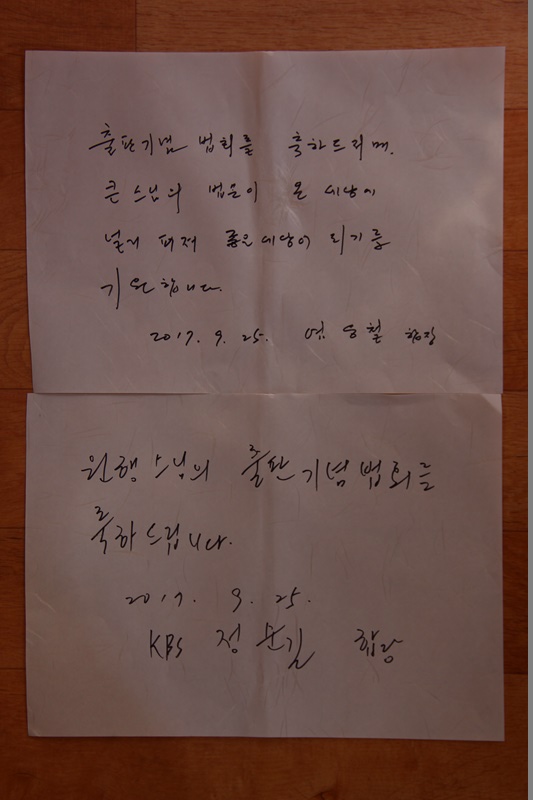 출판기념 법회를 축하드리며,
큰스님의 법문이 온 세상에
널리 퍼져 좋은세상이 되기를
기원합니다.
2017. 9. 25. 엄 승철 합장
원행 스님의 출판기념법회를
축하드립니다.
2017. 9. 25.
KBS 정 문길 합장